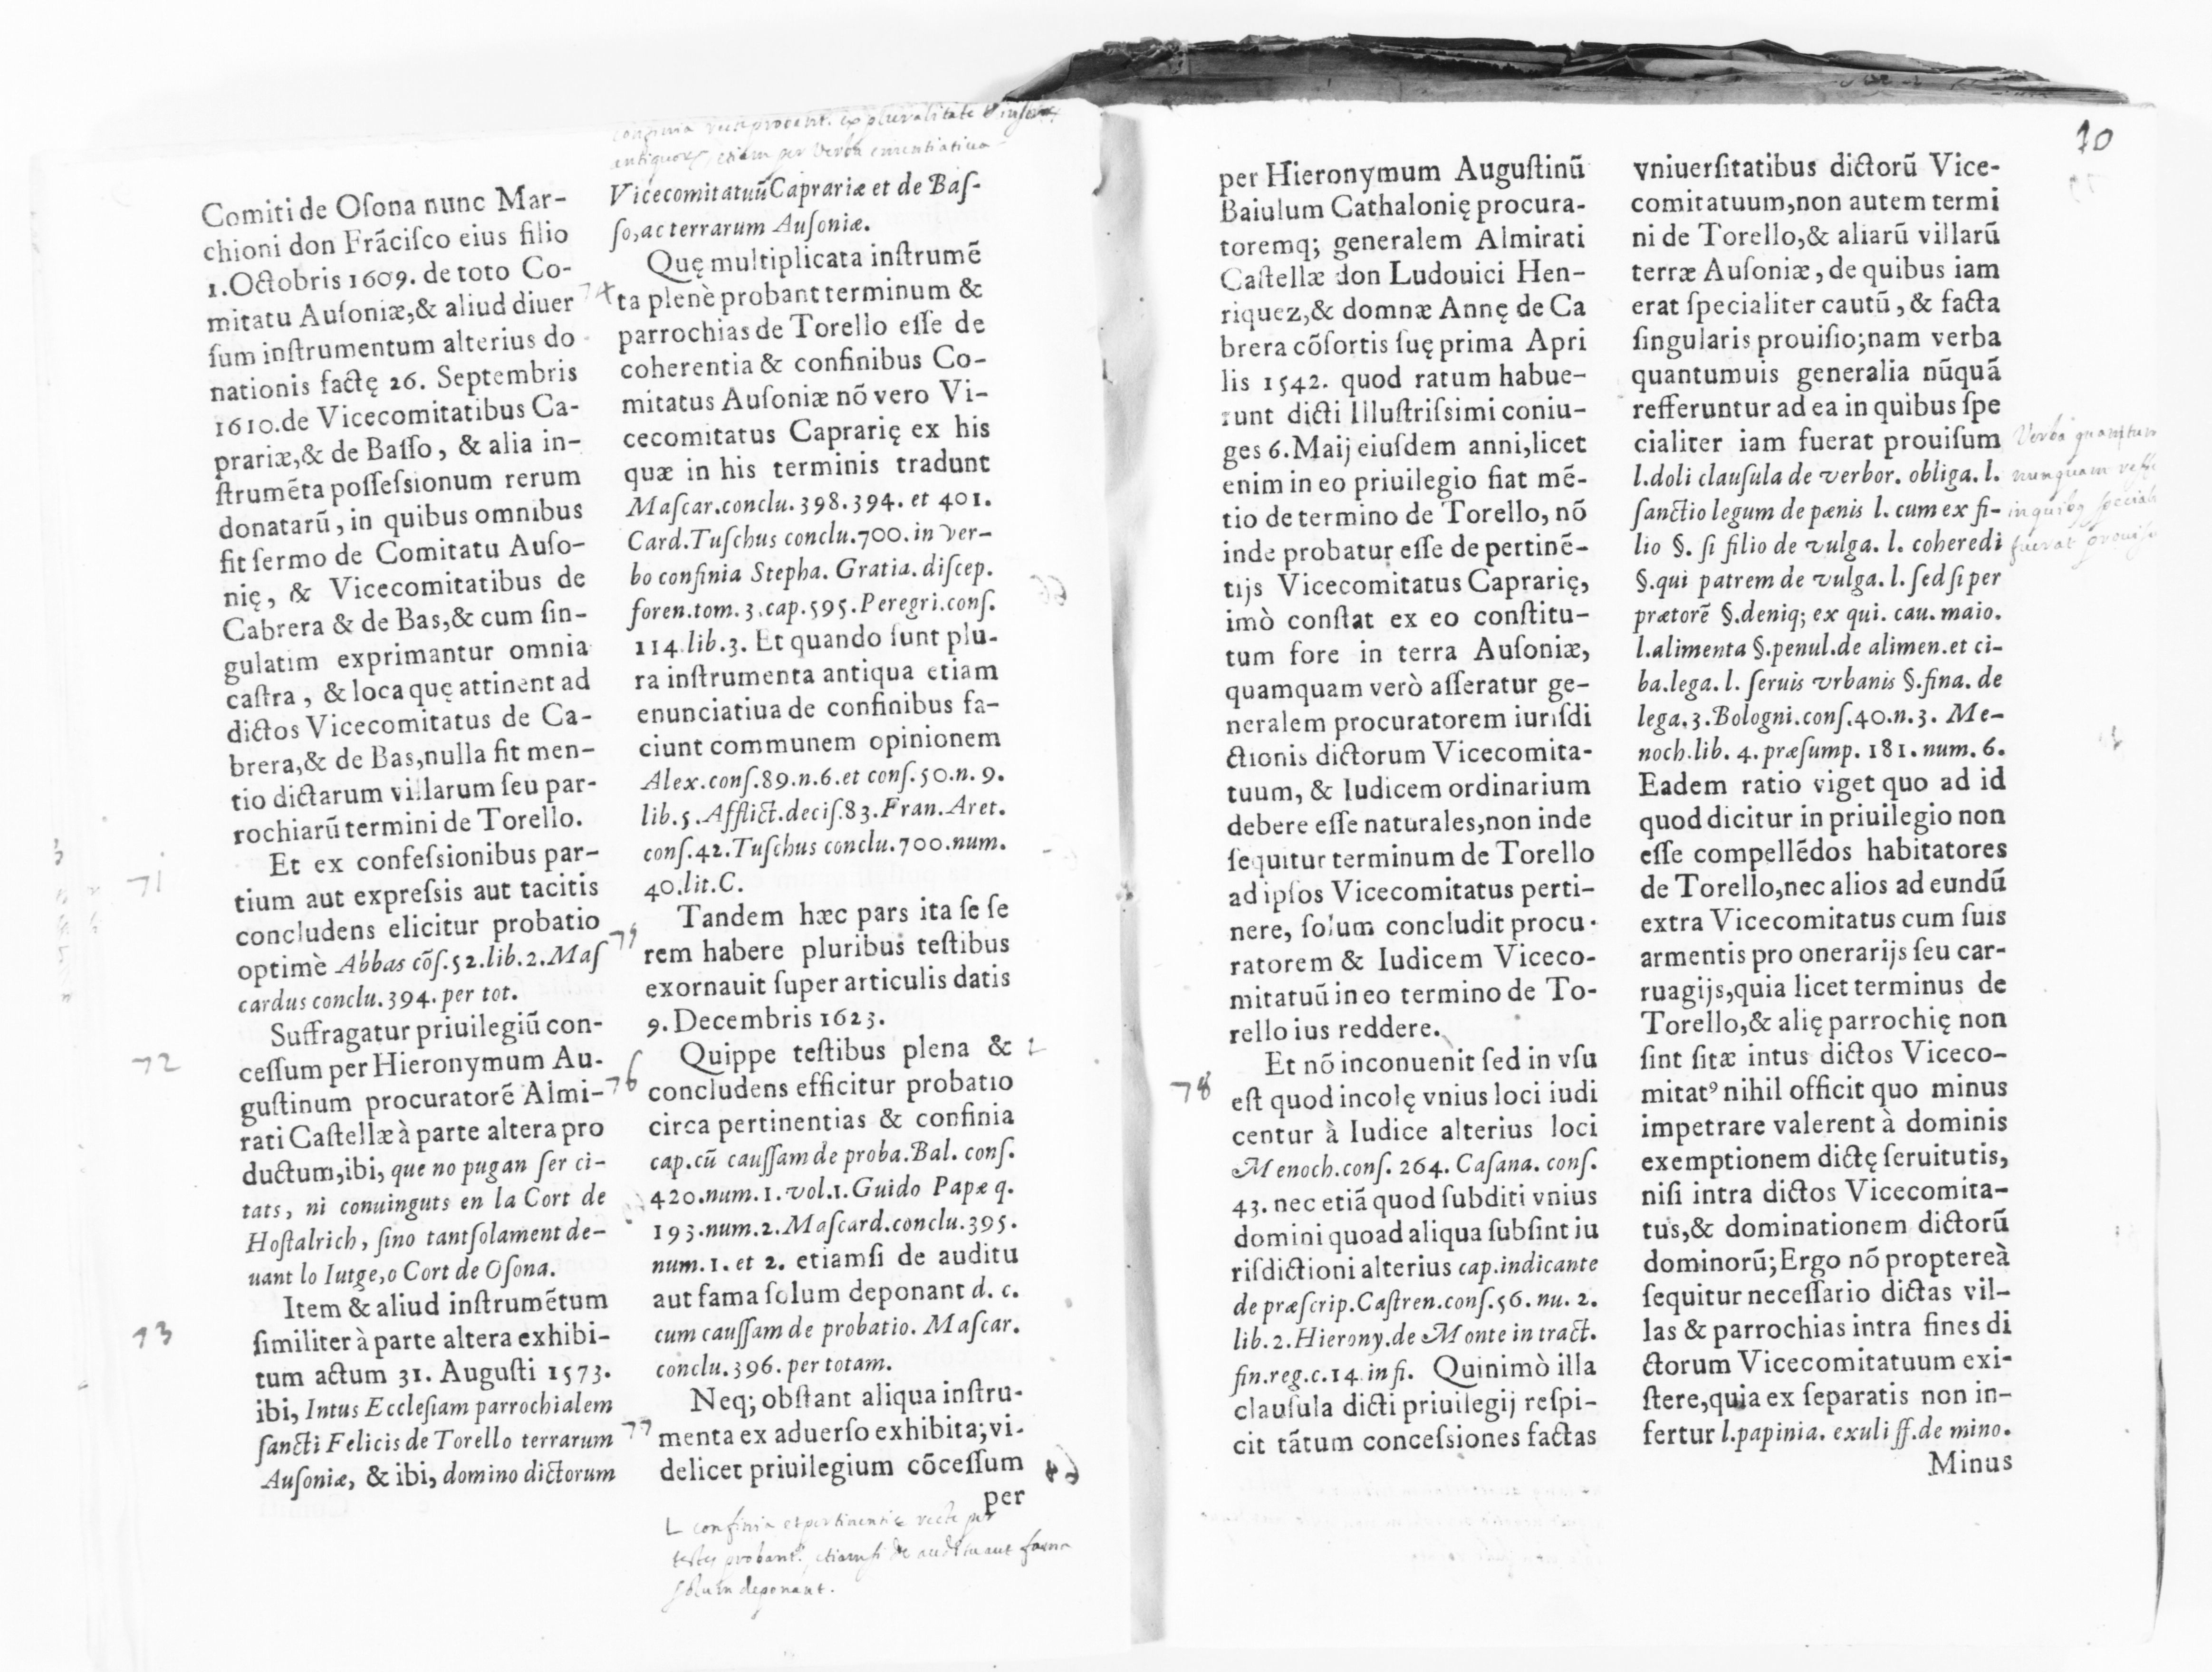 Comiti de Oſona nunc Mar-
chioni don Frãciſco eius filio
1.Octobris 1609. de toto Co-
mitatu Auſoniæ,& aliud diuer
ſum inſtrumentum alterius do
nationis factę 26. Septembris
1610.de Vicecomitatibus Ca-
prariæ,& de Baſſo, & alia in-
ſtrumẽta poſſeſsionum rerum
donatarũ, in quibus omnibus
fit ſermo de Comitatu Auſo-
nię, & Vicecomitatibus de
Cabrera & de Bas,& cum ſin-
gulatim exprimantur omnia
caſtra, & loca quę attinent ad
dictos Vicecomitatus de Ca-
brera,& de Bas,nulla fit men-
tio dictarum villarum ſeu par-
rochiarũ termini de Torello.
71
Et ex confeſsionibus par-
tium aut expreſsis aut tacitis
concludens elicitur probatio
optimè Abbas cõſ.52.lib.2.Maſ
cardus conclu.394. per tot.
72
Suffragatur priuilegiũ con-
ceſſum per Hieronymum Au-
guſtinum procuratorẽ Almi-
rati Caſtellæ à parte altera pro
ductum,ibi, que no pugan ſer ci-
tats, ni conuinguts en la Cort de
Hoſtalrich, ſino tantſolament de-
uant lo Iutge,o Cort de Oſona.
73
Item & aliud inſtrumẽtum
ſimiliter à parte altera exhibi-
tum actum 31. Auguſti 1573.
ibi, Intus Eccleſiam parrochialem
ſancti Felicis de Torello terrarum
Auſoniæ, & ibi, domino dictorum
confinia recte probant. ex pluralitate
antiquor etiam per verba enuntiatiua
Vicecomitatuũ Caprariæ et de Baſ-
ſo,ac terrarum Auſoniæ.
74
Quę multiplicata inſtrumẽ
ta plenè probant terminum &
parrochias de Torello eſſe de
coherentia & confinibus Co-
mitatus Auſoniæ nõ vero Vi-
cecomitatus Caprarię ex his
quæ in his terminis tradunt
Maſcar.conclu.398.394. et 401.
Card.Tuſchus conclu.700.in ver-
bo confinia Stepha. Gratia. diſcep.
foren.tom.3.cap.595.Peregri.conſ.
114.lib.3. Et quando ſunt plu-
ra inſtrumenta antiqua etiam
enunciatiua de confinibus fa-
ciunt communem opinionem
Alex.conſ.89.n.6.et conſ.50.n.9.
lib.5.Afflict.deciſ.83.Fran.Aret.
conſ.42.Tuſchus conclu.700.num.
40.lit.C.
75
Tandem hæc pars ita ſe ſe
rem habere pluribus teſtibus
exornauit ſuper articulis datis
9.Decembris 1623.
76
Quippe teſtibus plena & L
concludens efficitur probatio
circa pertinentias & confinia
cap.cũ cauſſam de proba.Bal. conſ.
420.num.1.vol.1.Guido Papæ q.
193.num.2.Maſcard.conclu.395.
num.1. et 2. etiamſi de auditu
aut fama ſolum deponant d. c.
cum cauſſam de probatio. Maſcar.
conclu.396.per totam.
77
Neq; obſtant aliqua inſtru-
menta ex aduerſo exhibita;vi-
delicet priuilegium cõceſſum
per
L confinia et pertinentiæ recte per
testes probant. etiamsi de auditu aut fama
solum deponant.
10
per Hieronymum Auguſtinũ
Baiulum Cathalonię procura-
toremq; generalem Almirati
Caſtellæ don Ludouici Hen-
riquez,& domnæ Annę de Ca
brera cõſortis ſuę prima Apri
lis 1542. quod ratum habue-
runt dicti Illuſtriſsimi coniu-
ges 6.Maij eiuſdem anni,licet
enim in eo priuilegio fiat mẽ-
tio de termino de Torello, nõ
inde probatur eſſe de pertinẽ-
tijs Vicecomitatus Caprarię,
imò conſtat ex eo conſtitu-
tum fore in terra Auſoniæ,
quamquam verò aſſeratur ge-
neralem procuratorem iuriſdi
ctionis dictorum Vicecomita-
tuum, & Iudicem ordinarium
debere eſſe naturales,non inde
ſequitur terminum de Torello
ad ipſos Vicecomitatus perti-
nere, ſolum concludit procu-
ratorem & Iudicem Viceco-
mitatuũ in eo termino de To-
rello ius reddere.
78
Et nõ inconuenit ſed in vſu
eſt quod incolę vnius loci iudi
centur à Iudice alterius loci
Menoch.conſ. 264. Caſana. conſ.
43. nec etiã quod ſubditi vnius
domini quoad aliqua ſubſint iu
riſdictioni alterius cap.indicante
de præſcrip.Caſtren.conſ.56. nu. 2.
lib.2.Hierony.de Monte in tract.
fin.reg.c.14.in fi. Quinimò illa
clauſula dicti priuilegij reſpi-
cit tãtum conceſsiones factas
vniuerſitatibus dictorũ Vice-
comitatuum,non autem termi
ni de Torello,& aliarũ villarũ
terræ Auſoniæ, de quibus iam
erat ſpecialiter cautũ, & facta
ſingularis prouiſio;nam verba
quantumuis generalia nũquã
refferuntur ad ea in quibus ſpe
cialiter iam fuerat prouiſum
l.doli clauſula de verbor. obliga. l.
ſanctio legum de pœnis l. cum ex fi-
lio §. ſi filio de vulga. l. coheredi
§.qui patrem de vulga. l. ſed ſi per
prætorẽ §.deniq; ex qui. cau. maio.
l.alimenta §.penul.de alimen.et ci-
ba.lega. l. ſeruis vrbanis §.fina. de
lega.3.Bologni.conſ.40.n.3. Me-
noch.lib. 4. præſump. 181. num. 6.
Eadem ratio viget quo ad id
quod dicitur in priuilegio non
eſſe compellẽdos habitatores
de Torello,nec alios ad eundũ
extra Vicecomitatus cum ſuis
armentis pro onerarijs ſeu car-
ruagijs,quia licet terminus de
Torello,& alię parrochię non
ſint ſitæ intus dictos Viceco-
mitatꝰ nihil officit quo minus
impetrare valerent à dominis
exemptionem dictę ſeruitutis,
niſi intra dictos Vicecomita-
tus,& dominationem dictorũ
dominorũ;Ergo nõ proptereà
ſequitur neceſſario dictas vil-
las & parrochias intra fines di
ctorum Vicecomitatuum exi-
ſtere,quia ex ſeparatis non in-
fertur l.papinia. exuli ff.de mino.
Minus
Verba
nunquam
in quibus
fuerat